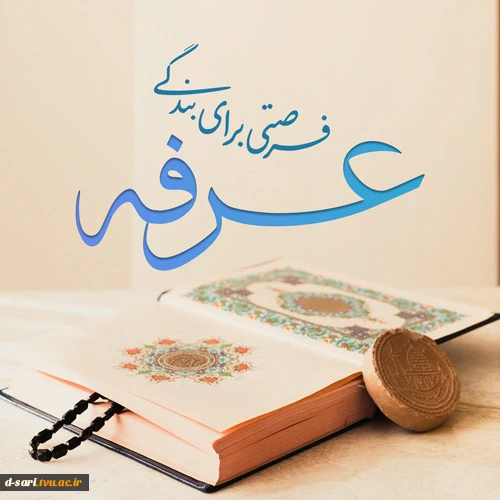 فرصتی برای بندگی
عرفه
d-sari.tvu.ac.ir